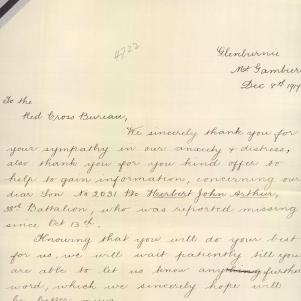 4722
Glenburnie
Mt Gambier
Dec 8th 1917
To the
Red Cross Bureau,
We sincerely thank you for
your sympathy in our anxiety & distress,
also thank you for you kind offer to
help to gain information, concerning our
dear Son No 2031 Pte Herbert John Arthur,
Battalion, who was reported missing
since Oct 13th.
Knowing that you will do your best
for us, we will wait patiently till you
are able to let us know any further
word, which we sincerely hope will
be better news